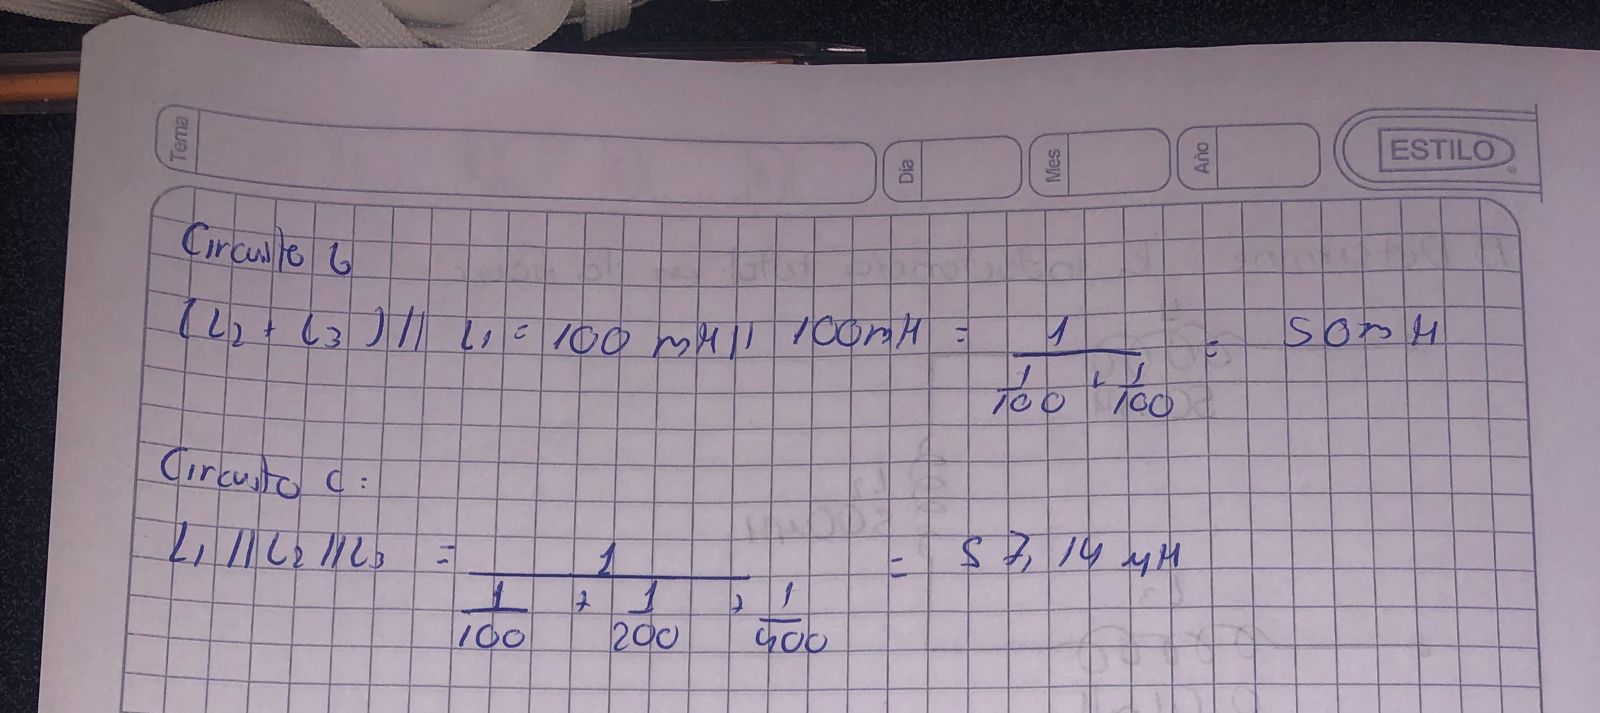 Tema
Día
Mes
Año
ESTILO
Circuito b
(L2 + L3) // L1 = 100 mH // 100mH = 1 / (1/100 + 1/100) = 50mH
Circuito C:
L1 // L2 // L3 = 1 / (1/100 + 1/200 + 1/400) = 57,14 μH